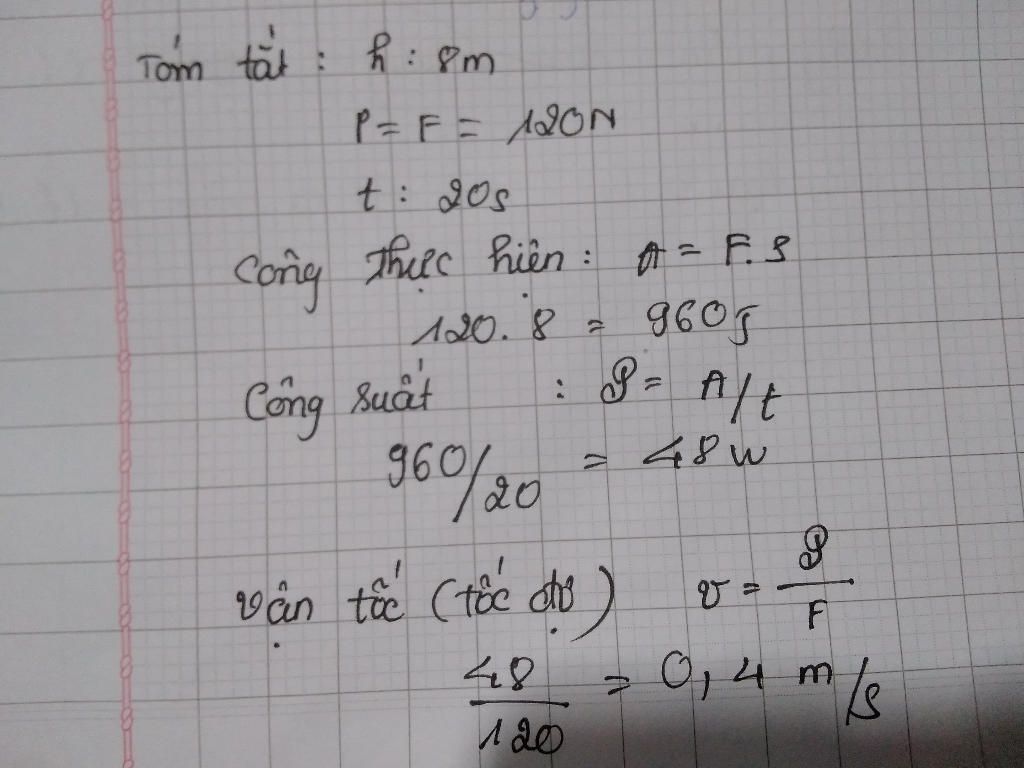 Tóm tắt : h : 8m
P = F = 120N
t : 20s
Công thực hiện : A = F.S
120.8 = 960J
Công suất : P = A/t
960/20 = 48W
vận tốc (tốc độ) v = P/F
48/120 = 0,4 m/s